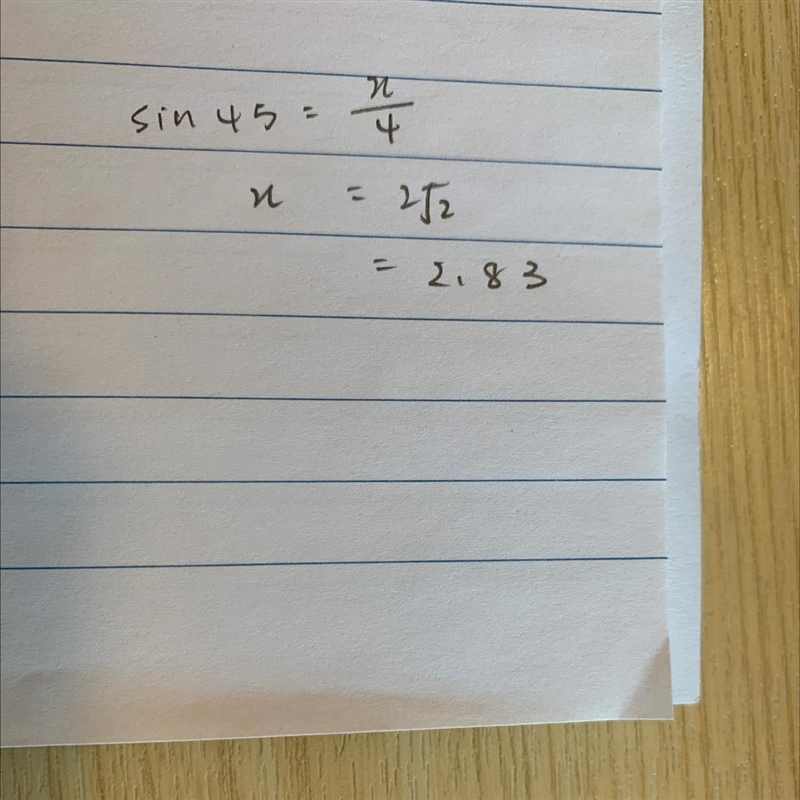 sin 45 = x/4
x = 2√2
= 2.83